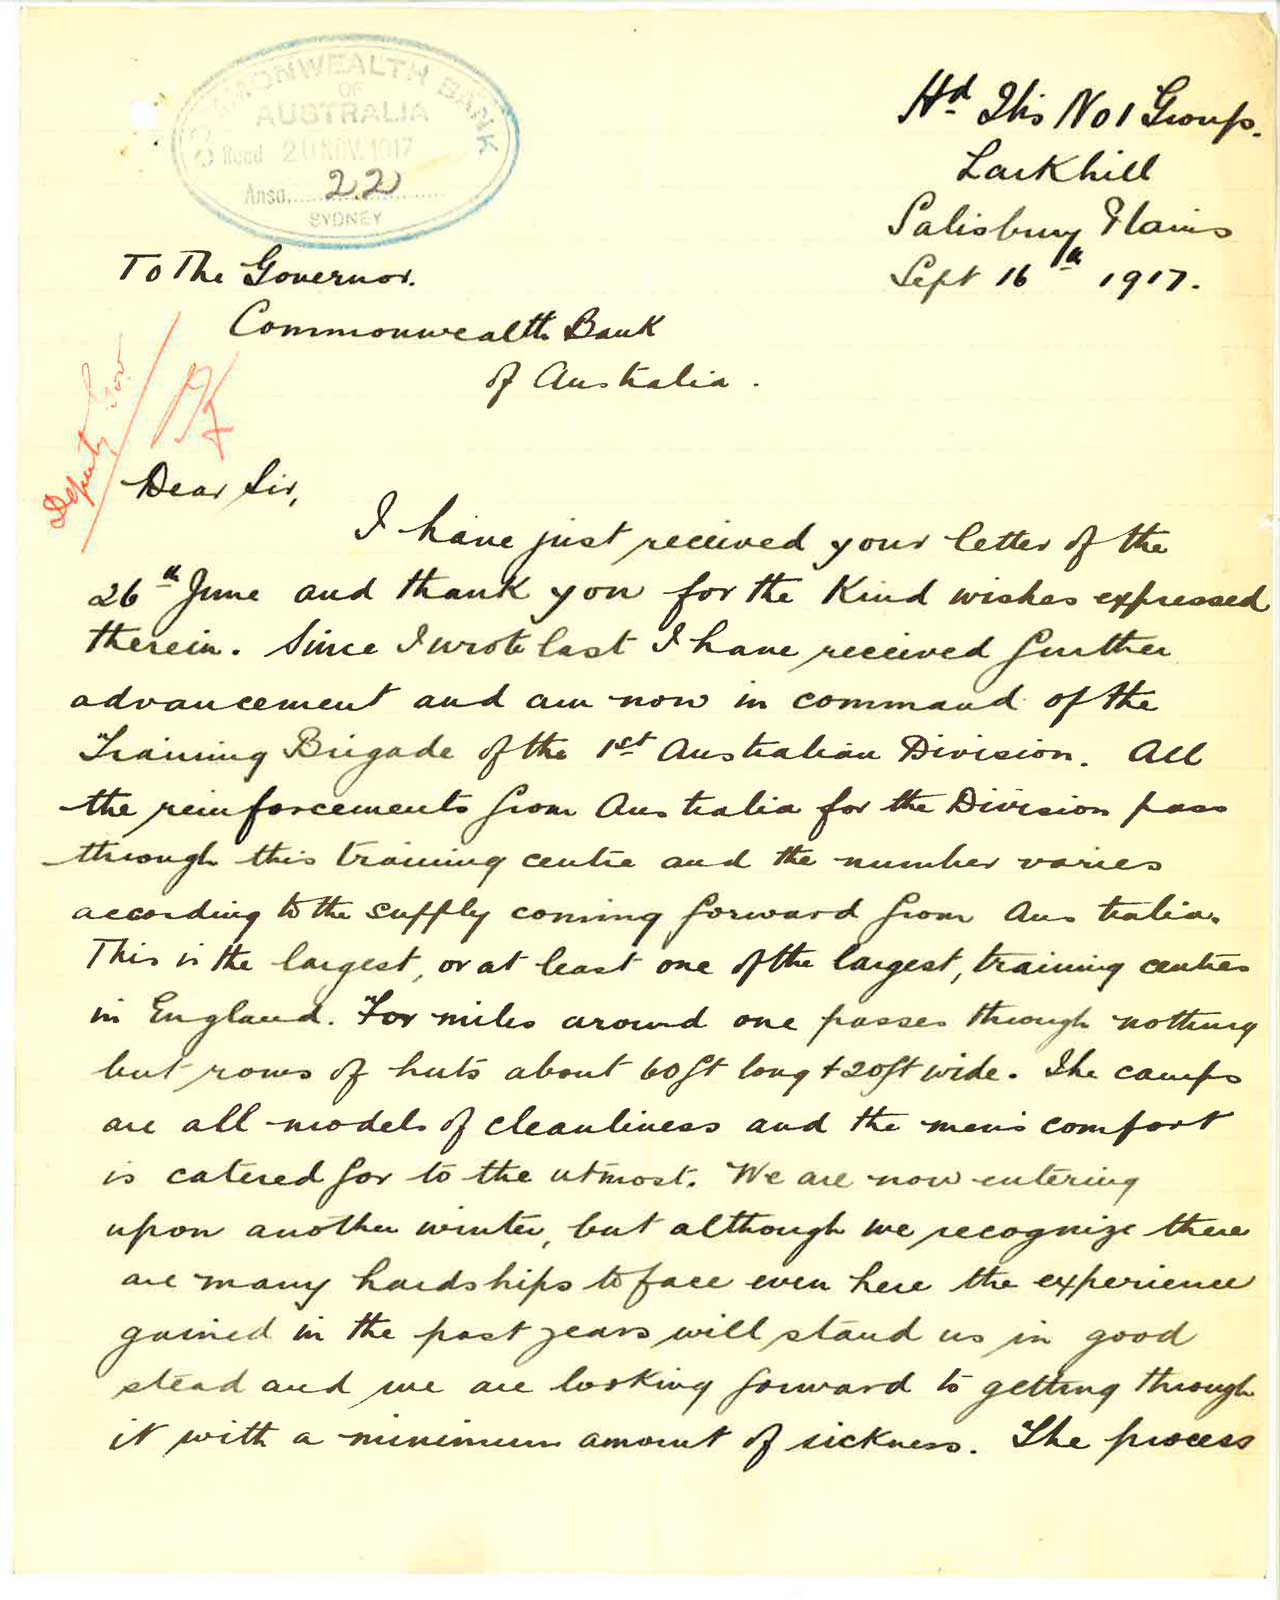 COMMONWEALTH BANK
OF
AUSTRALIA
Recd 20 NOV. 1917
Ansd. 22
SYDNEY
Hd Qtrs No 1 Group.
Larkhill
Salisbury Plains
Sept 16th 1917.
To The Governor.
Commonwealth Bank
of Australia.
Deputy Gov.
Dear Sir,
I have just received your letter of the
26th June and thank you for the kind wishes expressed
therein. Since I wrote last I have received further
advancement and am now in command of the
Training Brigade of the 1st Australian Division. All
the reinforcements from Australia for the Division pass
through this training centre and the number varies
according to the supply coming forward from Australia.
This is the largest, or at least one of the largest, training centres
in England. For miles around one passes through nothing
but rows of huts about 60ft long + 20ft wide. The camps
are all models of cleanliness and the men's comfort
is catered for to the utmost. We are now entering
upon another winter, but although we recognize there
are many hardships to face even here the experience
gained in the past years will stand us in good
stead and we are looking forward to getting through
it with a minimum amount of sickness. The process